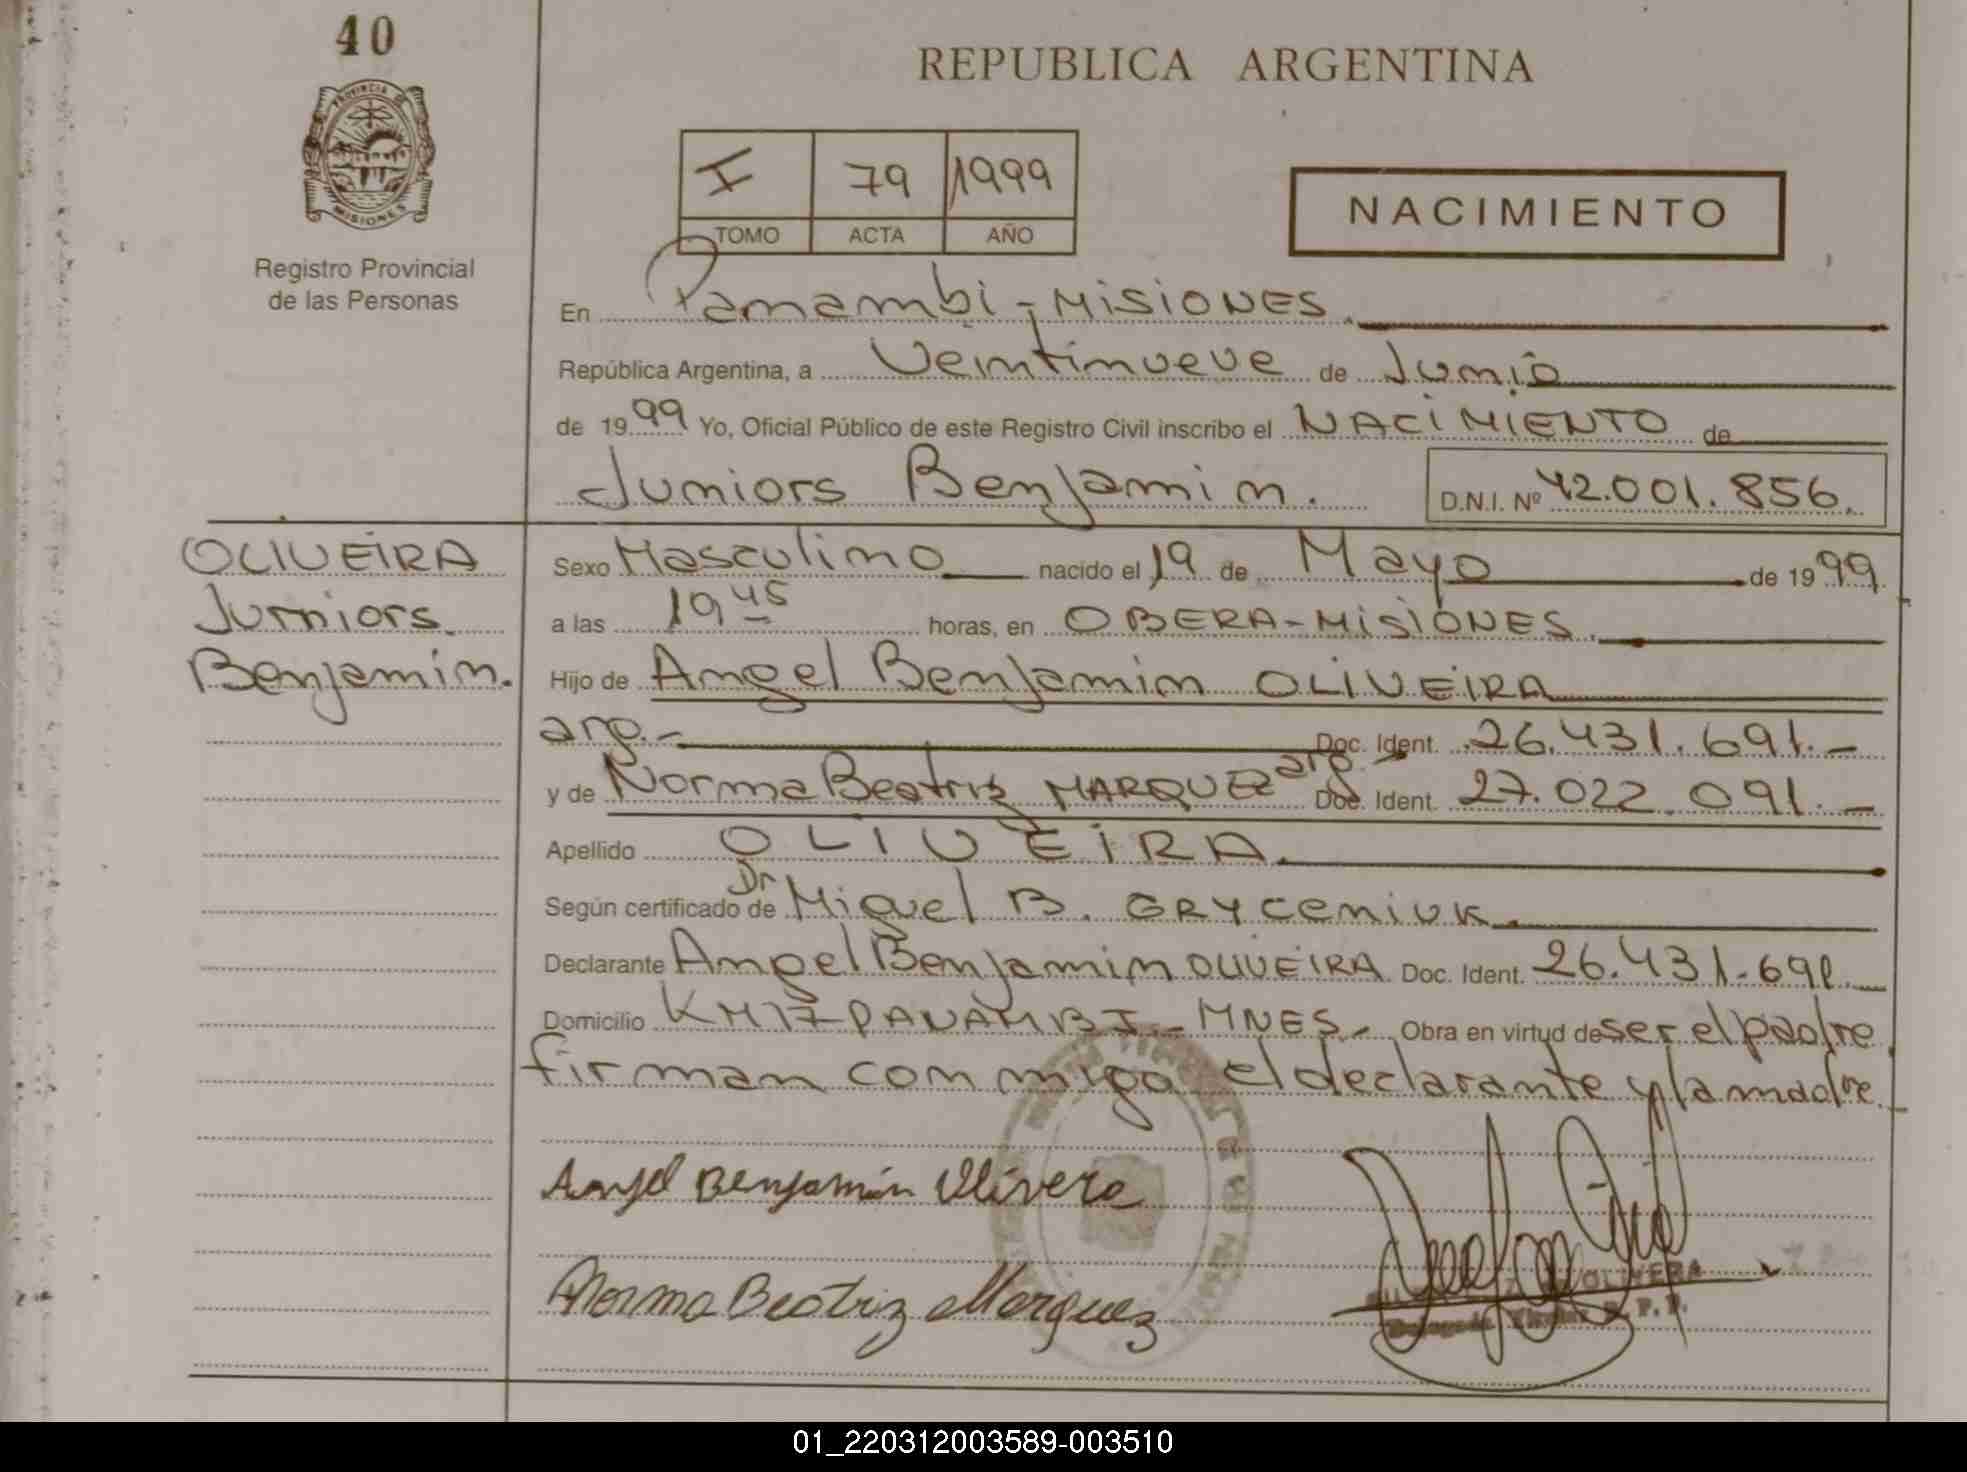 40
REPUBLICA ARGENTINA
PROVINCIA DE
MISIONES
Registro Provincial
de las Personas
I 79 1999
TOMO ACTA AÑO
NACIMIENTO
En Panambi - MISIONES.
República Argentina, a Veintinueve de Junio
de 1999 Yo, Oficial Público de este Registro Civil inscribo el NACIMIENTO de
Juniors Benjamin. D.N.I. Nº 42.001.856.
OLIVEIRA
Juniors
Benjamin.
Sexo Masculino nacido el 19 de Mayo de 1999
a las 19 45 horas, en OBERA - MISIONES.
Hijo de Angel Benjamin OLIVEIRA
arg.- Doc. Ident. 26.431.691.-
y de Norma Beatriz MARQUEZ arg.- Doc. Ident. 27.022.091.-
Apellido OLIVEIRA.
Según certificado de Dr Miguel B. GRYCENIUK.
Declarante Angel Benjamin OLIVEIRA Doc. Ident. 26.431.691.
Domicilio KM 17 PANAMBI - MNES.- Obra en virtud de ser el padre
firman con migo el declarante y la madre.
Angel Benjamin Olivera
Norma Beatriz Marquez
OLIVERA
01_220312003589-003510